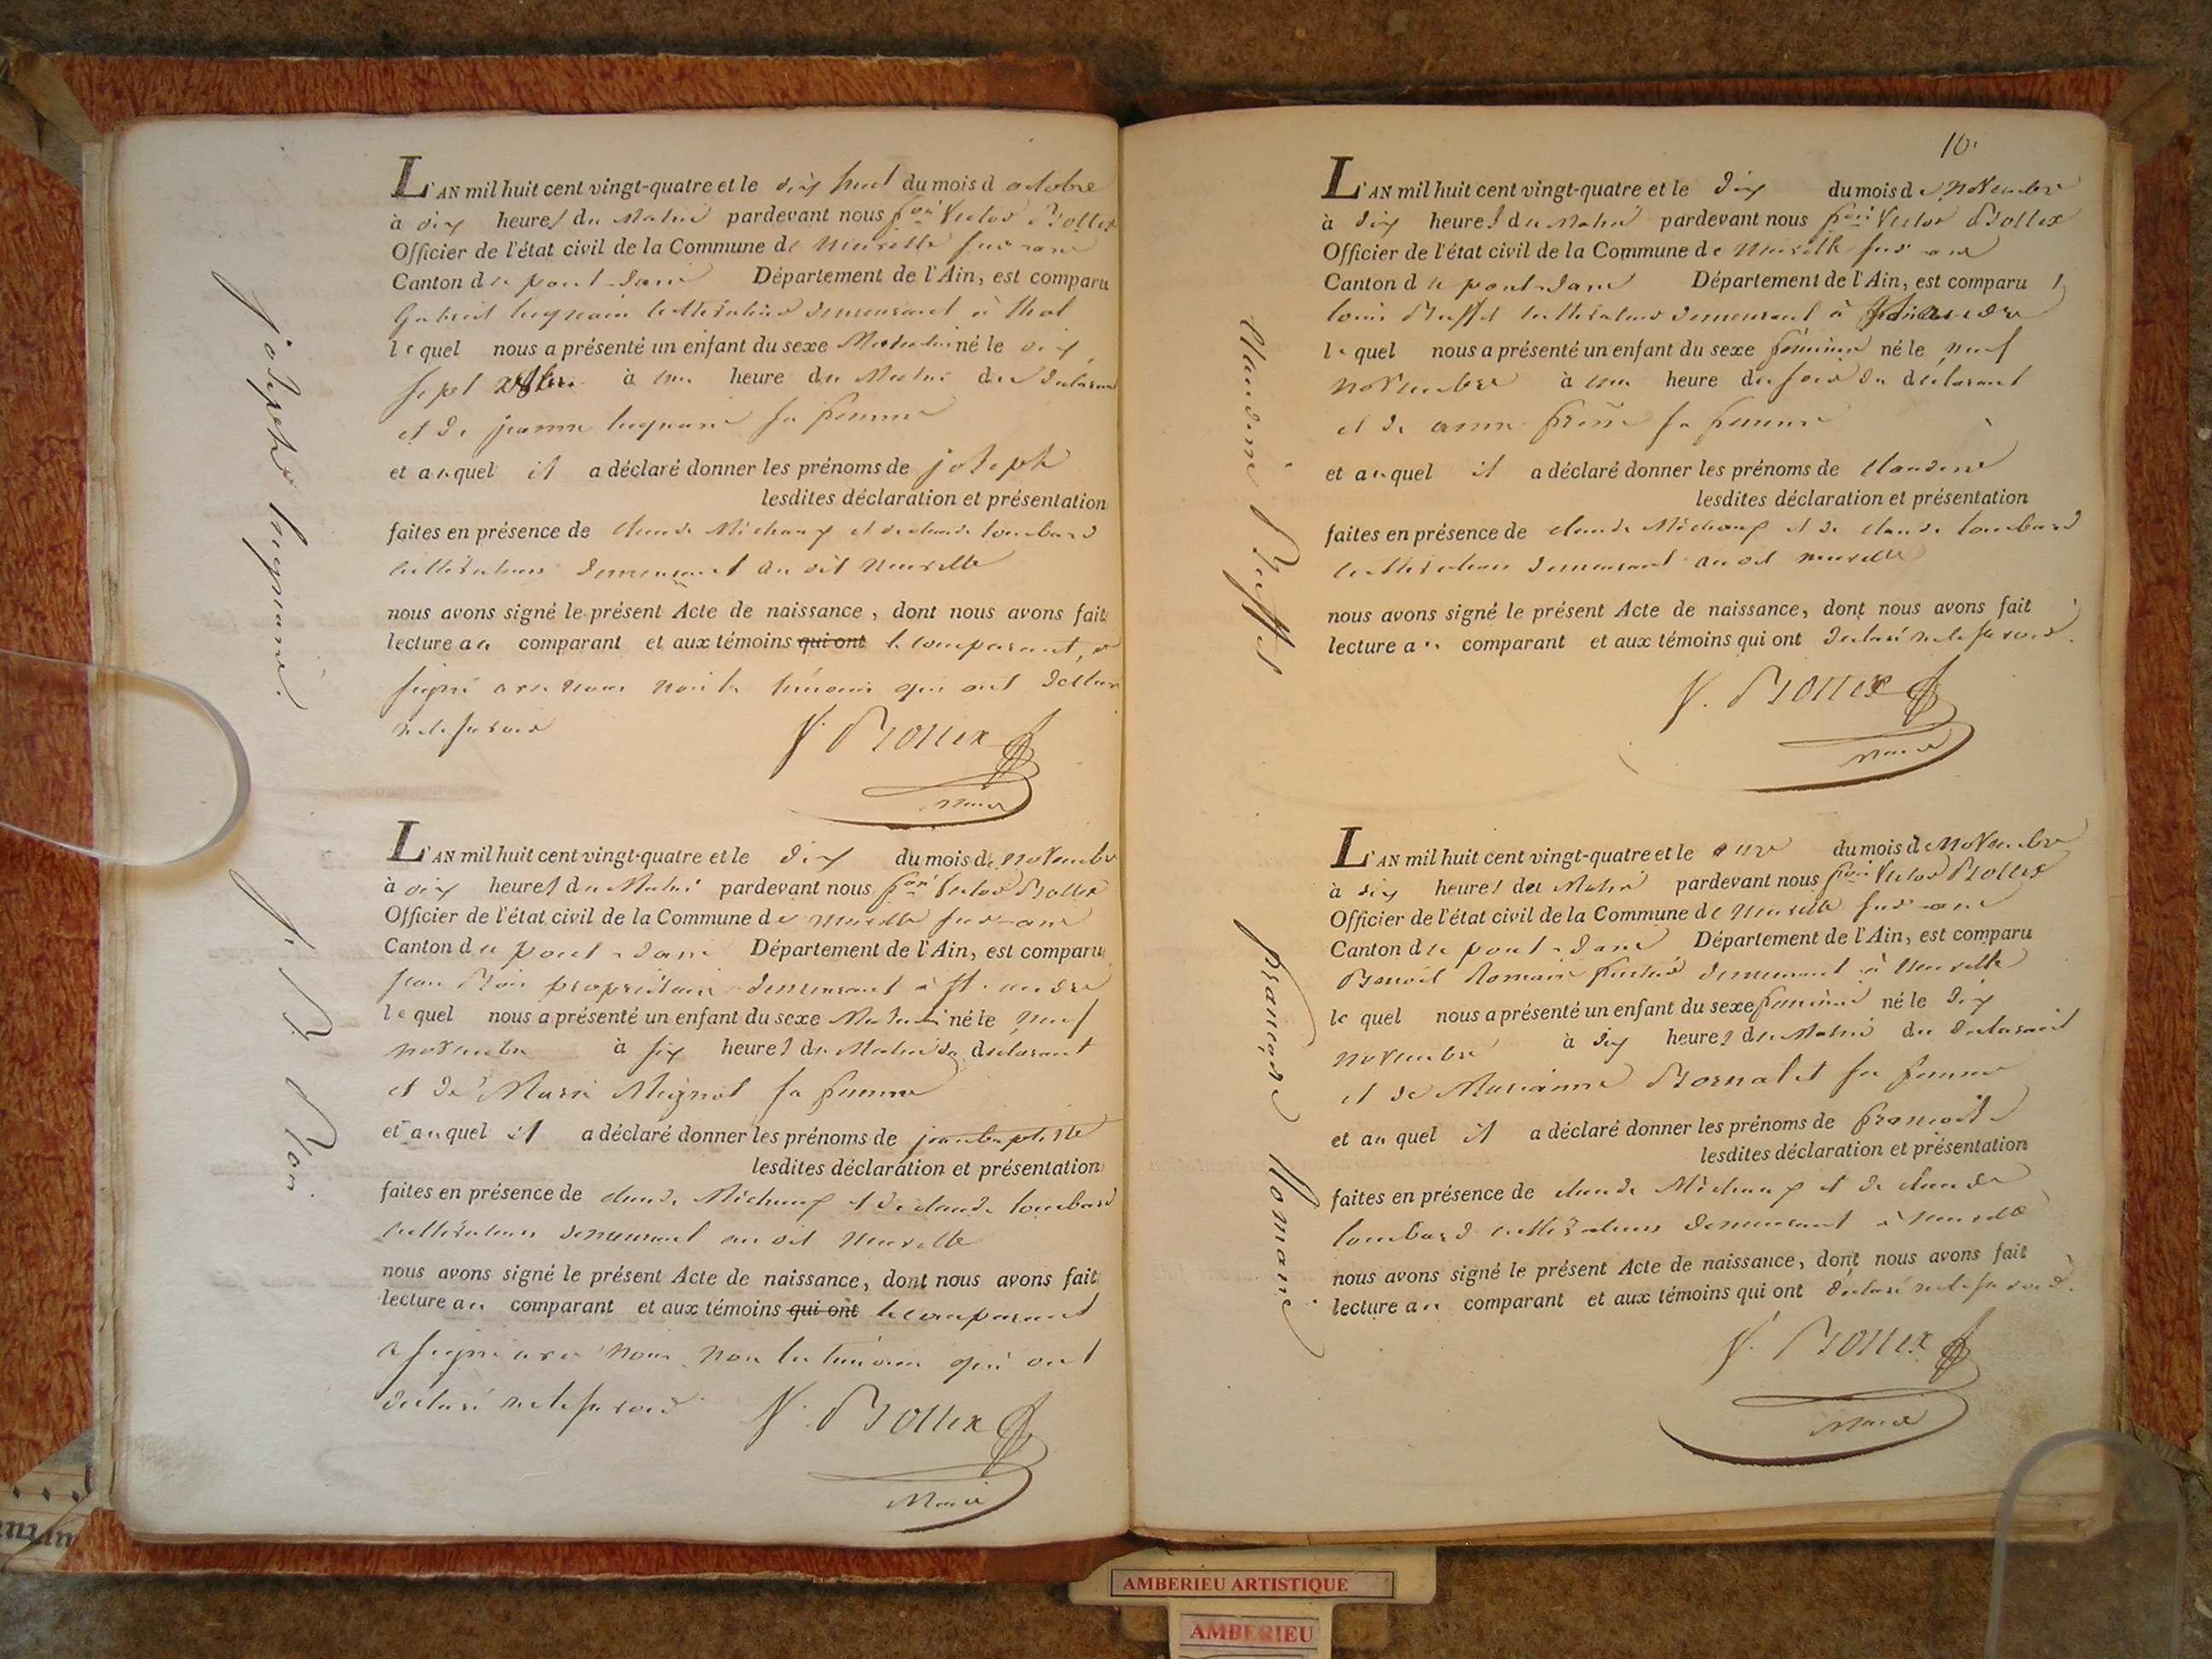 L'AN mil huit cent vingt-quatre et le dix huit du mois d octobre
à dix heures du Matin pardevant nous fois Victor Bollex
Officier de l'état civil de la Commune de Neuville sur ain
Canton de pont-dain Département de l'Ain, est comparu
Gabriel cultivateur demeurant à thol
lequel nous a présenté un enfant du sexe Masculin né le dix
sept à une heure du Matin du déclarant
et de jeanne sa femme
et auquel il a déclaré donner les prénoms de joseph
lesdites déclaration et présentation
faites en présence de claude Michaux et de claude lombard
cultivateurs demeurant au dit Neuville
nous avons signé le présent Acte de naissance, dont nous avons fait
lecture au comparant et aux témoins qui ont le comparant a
signé avec nous non les témoins qui ont déclaré
ne le savoir
V. Bollex
Maire
joseph
L'AN mil huit cent vingt-quatre et le dix du mois de novembre
à dix heures du Matin pardevant nous fois Victor Bollex
Officier de l'état civil de la Commune de Neuville sur-ain
Canton de pont-dain Département de l'Ain, est comparu
jean propriétaire demeurant à st. andré
lequel nous a présenté un enfant du sexe Masculin né le neuf
novembre à six heures du Matin du déclarant
et de Marie Mignot sa femme
et auquel il a déclaré donner les prénoms de jean baptiste
lesdites déclaration et présentation
faites en présence de claude Michaux et de claude lombard
cultivateurs demeurant au dit Neuville
nous avons signé le présent Acte de naissance, dont nous avons fait
lecture au comparant et aux témoins qui ont le comparant
a signé avec nous non les témoins qui ont
déclaré ne le savoir
V. Bollex
Maire
j. B.
10.
L'AN mil huit cent vingt-quatre et le dix du mois de novembre
à dix heures du Matin pardevant nous fois Victor Bollex
Officier de l'état civil de la Commune de Neuville sur ain
Canton de pont-dain Département de l'Ain, est comparu
louis Buffet cultivateur demeurant à
lequel nous a présenté un enfant du sexe féminin né le neuf
novembre à une heure du soir du déclarant
et de anne sa femme
et auquel il a déclaré donner les prénoms de claudine
lesdites déclaration et présentation
faites en présence de claude Michaux et de claude lombard
cultivateurs demeurant au dit neuville
nous avons signé le présent Acte de naissance, dont nous avons fait
lecture au comparant et aux témoins qui ont déclaré ne le savoir.
V. Bollex
Maire
Claudine Buffet
L'AN mil huit cent vingt-quatre et le onze du mois de Novembre
à dix heures du Matin pardevant nous fois Victor Bollex
Officier de l'état civil de la Commune de Neuville sur-ain
Canton de pont-dain Département de l'Ain, est comparu
Benoit Romain demeurant à Neuville
lequel nous a présenté un enfant du sexe féminin né le dix
novembre à dix heures du Matin du déclarant
et de Marianne sa femme
et auquel il a déclaré donner les prénoms de françoise
lesdites déclaration et présentation
faites en présence de claude Michaux et de claude
lombard cultivateurs demeurant à neuville
nous avons signé le présent Acte de naissance, dont nous avons fait
lecture au comparant et aux témoins qui ont déclaré ne le savoir.
V. Bollex
Maire
françoise Romain
AMBERIEU ARTISTIQUE
AMBERIEU